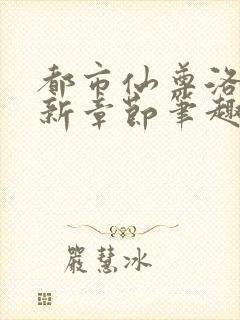 都市仙尊洛
新章節筆趣
嚴慧冰